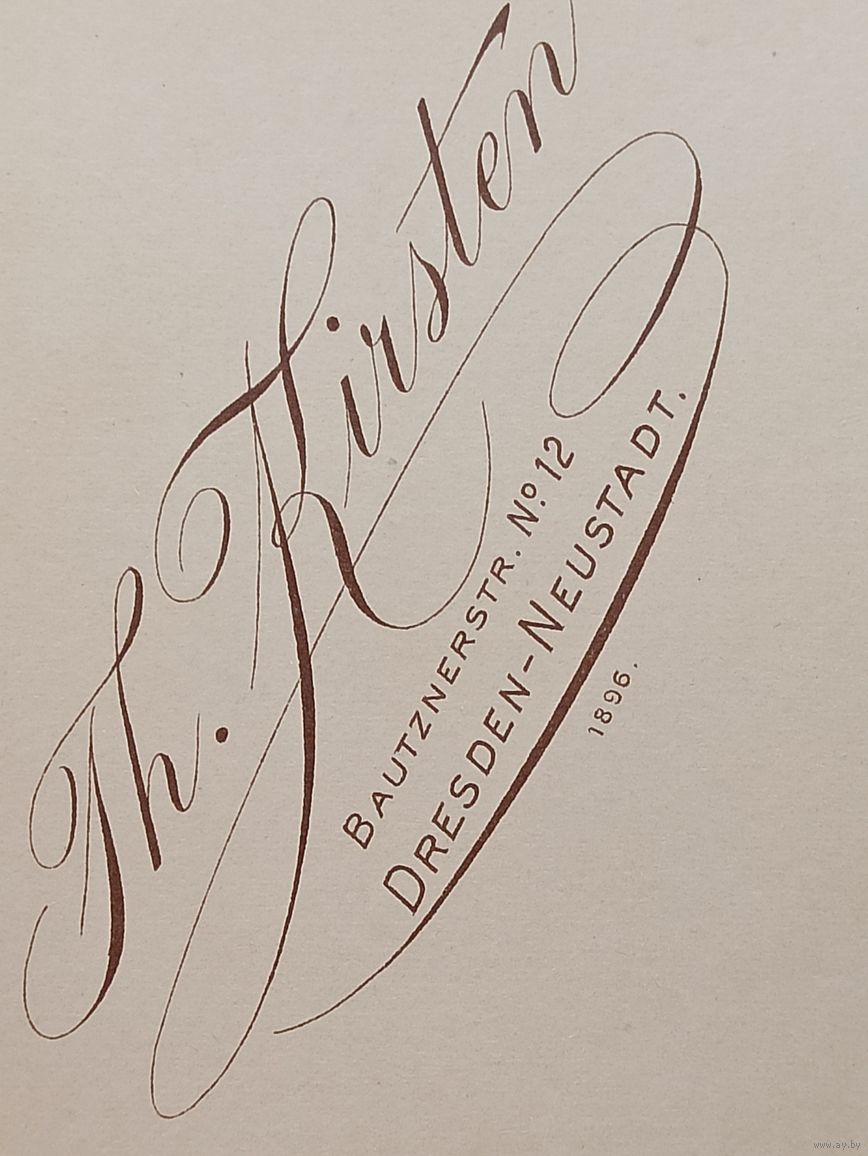 Th. Kirsten
BAUTZNERSTR. No 12
DRESDEN-NEUSTADT.
1896.
www.ay.by